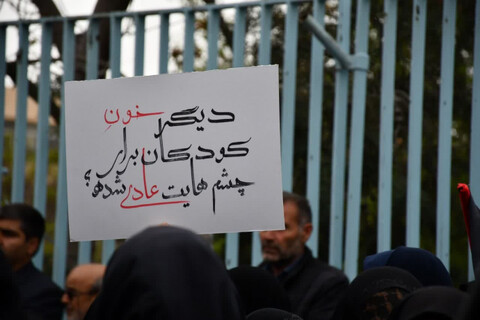 دیگر خون
کودکان برای
چشم هایت عادی شده؟